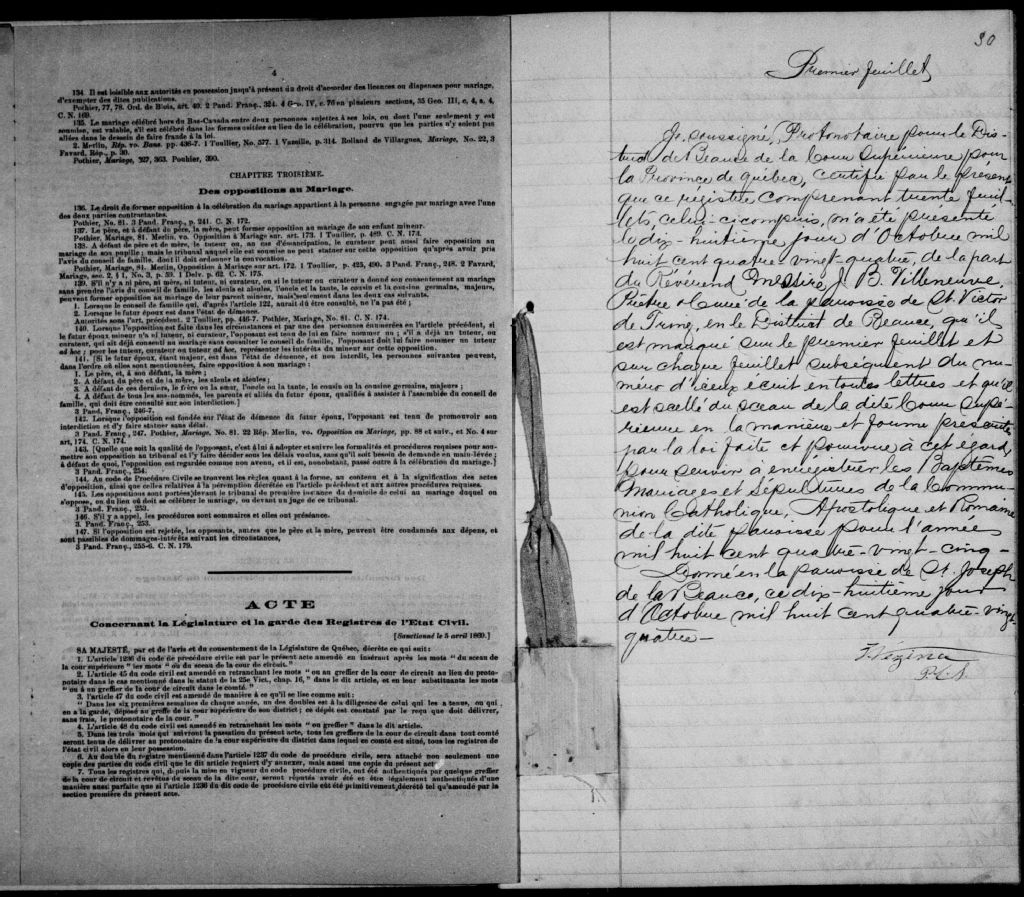 4
134. Il est loisible aux autorités en possession jusqu'à présent du droit d'accorder des licences ou dispenses pour mariage,
d'exempter des dites publications.
Pothier, 77, 78. Ord. de Blois, art. 40. 2 Pand. Franç., 324. 4 Geo. IV, c. 76 en plusieurs sections, 35 Geo. III, c, 4, s, 4,
C. N. 169.
135. Le mariage célébré hors du Bas-Canada entre deux personnes sujettes à ses lois, ou dont l'une seulement y est
soumise, est valable, s'il est célébré dans les formes usitées au lieu de la célébration, pourvu que les parties n'y soient pas
allées dans le dessein de faire fraude à la loi.
2. Merlin, Rép. vo. Bans. pp. 436-7. 1 Toullier, No. 577. 1 Vazille, p. 314. Rolland de Villargues, Mariage, No. 22, 3
Favard, Rép., p. 30.
Pothier, Mariage, 327, 363. Pouhier, 390.
CHAPITRE TROISIÈME.
Des oppositions au Mariage.
136. Le droit de former opposition à la célébration du mariage appartient à la personne engagée par mariage avec l'une
des deux parties contractantes.
Pothier, No. 81. 3 Pand. Franç., p. 241. C. N. 172.
137. Le père, et à défaut du père, la mère, peut former opposition au mariage de son enfant mineur.
Pothier, Mariage, 81. Merlin, vo. Opposition à Mariage sur art. 173. 1 Toullier, p. 489. C. N. 174.
138. A défaut de père et de mère, le tuteur ou, au cas d'émancipation, le curateur peut aussi faire opposition au
mariage de son pupille ; mais le tribunal auquel elle est soumise ne peut statuer sur cette opposition qu'après avoir pris
l'avis du conseil de famille, dont il doit ordonner la convocation.
Pothier, Mariage, 81. Merlin, Opposition à Mariage sur art. 172. 1 Toullier, p. 425, 490. 3 Pand. Franç., 248. 2 Favard,
Mariage, sec. 2, § 1, No. 3, p. 59. 1 Delv. p. 62. C. N. 175.
139. S'il n'y a ni père, ni mère, ni tuteur, ni curateur, ou si le tuteur ou curateur a donné son consentement au mariage
sans prendre l'avis du conseil de famille, les aïeuls et aïeules, l'oncle et la tante, le cousin et la cousine germains, majeurs,
peuvent former opposition au mariage de leur parent mineur, mais seulement dans les deux cas suivants.
1. Lorsque le conseil de famille qui, d'après l'article 122, aurait dû être consulté, ne l'a pas été ;
2. Lorsque le futur époux est dans l'état de démence.
Autorités sous l'art. précédent. 2 Toullier, pp. 446-7. Pothier, Mariage, No. 81. C. N. 174.
140. Lorsque l'opposition est faite dans les circonstances et par une des personnes énumérées en l'article précédent, si
le futur époux mineur n'a ni tuteur, ni curateur, l'opposant est tenu de lui en faire nommer un ; s'il a déjà un tuteur, ou
curateur, qui ait déjà consenti au mariage sans consulter le conseil de famille, l'opposant doit lui faire nommer un tuteur
ad hoc ; pour les tuteur, curateur ou tuteur ad hoc, représenter les intérêts du mineur sur cette opposition.
141. [Si le futur époux, étant majeur, est dans l'état de démence, et non interdit, les personnes suivantes peuvent,
dans l'ordre où elles sont mentionnées, faire opposition à son mariage :
1. Le père, et, à son défaut, la mère ;
2. A défaut du père et de la mère, les aïeuls et aïeules ;
3. A défaut de ces derniers, le frère ou la sœur, l'oncle ou la tante, le cousin ou la cousine germains, majeurs ;
4. A défaut de tous les sus-nommés, les parents et alliés du futur époux, qualifiés à assister à l'assemblée du conseil de
famille, qui doit être consulté sur son interdiction.]
3 Pand. Franç., 246-7.
142. Lorsque l'opposition est fondée sur l'état de démence du futur époux, l'opposant est tenu de promouvoir son
interdiction et d'y faire statuer sans délai.
3 Pand. Franç., 247. Pothier, Mariage, No. 81. 22 Rép. Merlin, vo. Opposition au Mariage, pp. 88 et suiv., et No. 4 sur
art, 174. C. N. 174.
143. [Quelle que soit la qualité de l'opposant, c'est à lui à adopter et suivre les formalités et procédures requises pour sou-
mettre son opposition au tribunal et l'y faire décider sous les délais voulus, sans qu'il soit besoin de demande en main-levée ;
à défaut de quoi, l'opposition est regardée comme non avenue, et il est, nonobstant, passé outre à la célébration du mariage.]
3 Pand. Franç., 254.
144. Au Code de Procédure Civile se trouvent les règles quant à la forme, au contenu et à la signification des actes
d'opposition, ainsi que celles relatives à la péremption décrétée en l'article précédent et aux autres procédures requises.
145. Les oppositions sont portées devant le tribunal de première instance du domicile de celui au mariage duquel on
s'oppose, ou du lieu où doit se célébrer le mariage, ou devant un juge de ce tribunal.
3 Pand. Franç., 253.
146. S'il y a appel, les procédures sont sommaires et elles ont préséance.
3. Pand. Franç., 253.
147. Si l'opposition est rejetée, les opposants, autres que le père et la mère, peuvent être condamnés aux dépens, et
sont passibles de dommages-intérêts suivant les circonstances,
3 Pand. Franç., 255-6. C. N. 179.
ACTE
Concernant la Législature et la garde des Registres de l'Etat Civil.
[Sanctionné le 5 avril 1869.]
SA MAJESTÉ, par et de l'avis et du consentement de la Législature de Québec, décrète ce qui suit :
1. L'article 1236 du code de procédure civile est par le présent acte amendé en insérant après les mots " du sceau de
la cour supérieure " les mots " ou du sceau de la cour de circuit."
2. L'article 45 du code civil est amendé en retranchant les mots " ou au greffier de la cour de circuit au lieu du proto-
notaire dans le cas mentionné dans le statut de la 25e Vict., chap. 16, " dans le dit article, et en leur substituant les mots
" ou à un greffier de la cour de circuit dans le comté."
3. l'article 47 du code civil est amendé de manière à ce qu'il se lise comme suit :
" Dans les six premières semaines de chaque année, un des doubles est à la diligence de celui qui les a tenus, ou qui
en a la garde, déposé au greffe de la cour supérieure de son district ; ce dépôt est constaté par le reçu que doit délivrer,
sans frais, le protonotaire de la cour. "
4. L'article 48 du code civil est amendé en retranchant les mots " on greffier " dans le dit article.
5. Dans les trois mois qui suivront la passation du présent acte, tous les greffiers de la cour de circuit dans tout comté
seront tenus de délivrer au protonotaire de la cour supérieure du district dans lequel ce comté est situé, tous les registres de
l'état civil alors en leur possession.
6. Au double du registre mentionné dans l'article 1237 du code de procédure civile, sera attaché non seulement une
copie des parties du code civil que le dit article requiert d'y annexer, mais aussi une copie du présent acte
7. Tous les registres qui, depuis la mise en vigueur du code procédure civile, ont été authentiqués par quelque greffier
de la cour de circuit et revêtus du sceau de la dite cour, seront réputés avoir été et être légalement authentiqués d'une
manière aussi parfaite que si l'article 1236 du dit code de procédure civile eut été primitivement décrété tel qu'amendé par la
section première du présent acte.
30
Premier feuillet
Je, soussigné, Protonotaire pour le Dis-
trict de Beauce de la Cour Supérieure pour
la Province de Québec, certifie par le présent
que ce régistre comprenant trente feuil-
lets, celui-ci compris, m'a été présenté
le dix-huitième jour d'Octobre mil
huit cent quatre-vingt-quatre, de la part
du Révérend Messire, J. B. Villeneuve,
Prêtre & Curé de la paroisse de St. Victor
de Tring, en le District de Beauce, qu'il
est marqué sur le premier feuillet et
sur chaque feuillet subséquent du nu-
méro d'iceux écrit en toutes lettres et qu'il
est scellé du sceau de la dite Cour Supé-
rieure en la manière et forme prescrite
par la loi faite et pourvue à cet égard,
pour servir à enregistrer les Baptêmes
Mariages et Sépultures de la Commu-
nion Catholique, Apostolique et Romaine
de la dite paroisse pour l'année
mil huit cent quatre-vingt-cinq-
Donné en la paroisse de St. Joseph
de la Beauce, ce dix-huitième jour
d'Octobre mil huit cent quatre-vingt-
quatre-
Vézina
P.C.S.